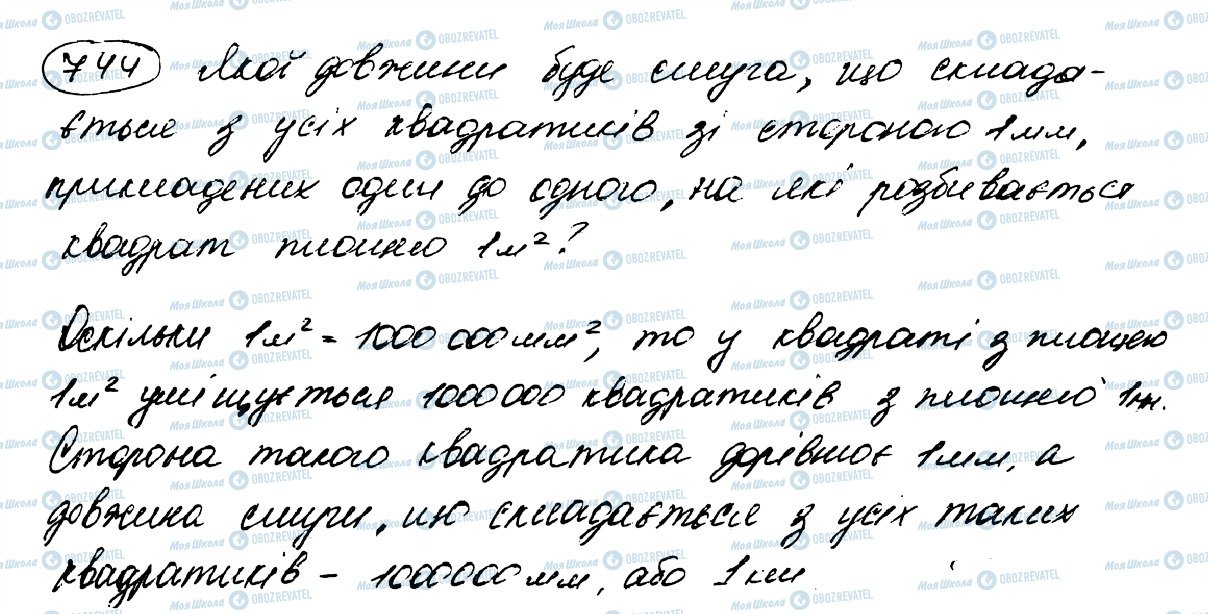 744 Якої довжини буде смуга, що склада-
ється з усіх квадратиків зі стороною 1мм,
прикладених один до одного, на які розбивається
квадрат площею 1м²?
Оскільки 1м² = 1000 000 мм², то у квадраті з площею
1м² уміщується 1000000 квадратиків з площею 1мм.
Сторона такого квадратика дорівнює 1мм, а
довжина смуги, що складається з усіх таких
квадратиків - 1000000 мм, або 1 км